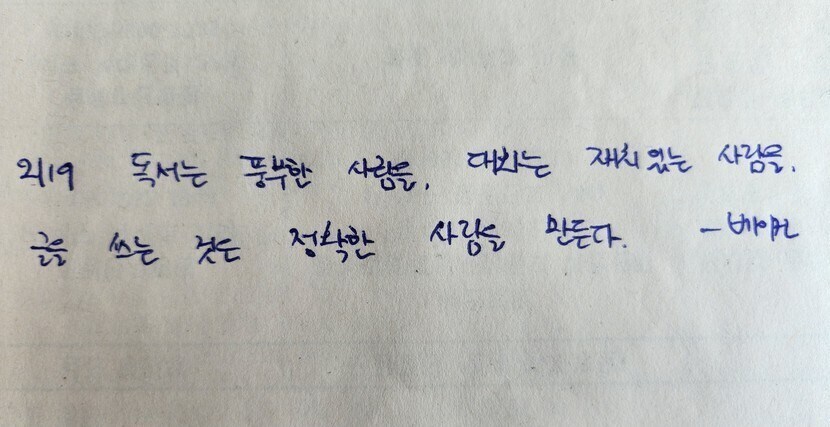 2/19 독서는 풍부한 사람을, 대화는 재치있는 사람을,
글을 쓰는 것은 정확한 사람을 만든다. - 베이컨